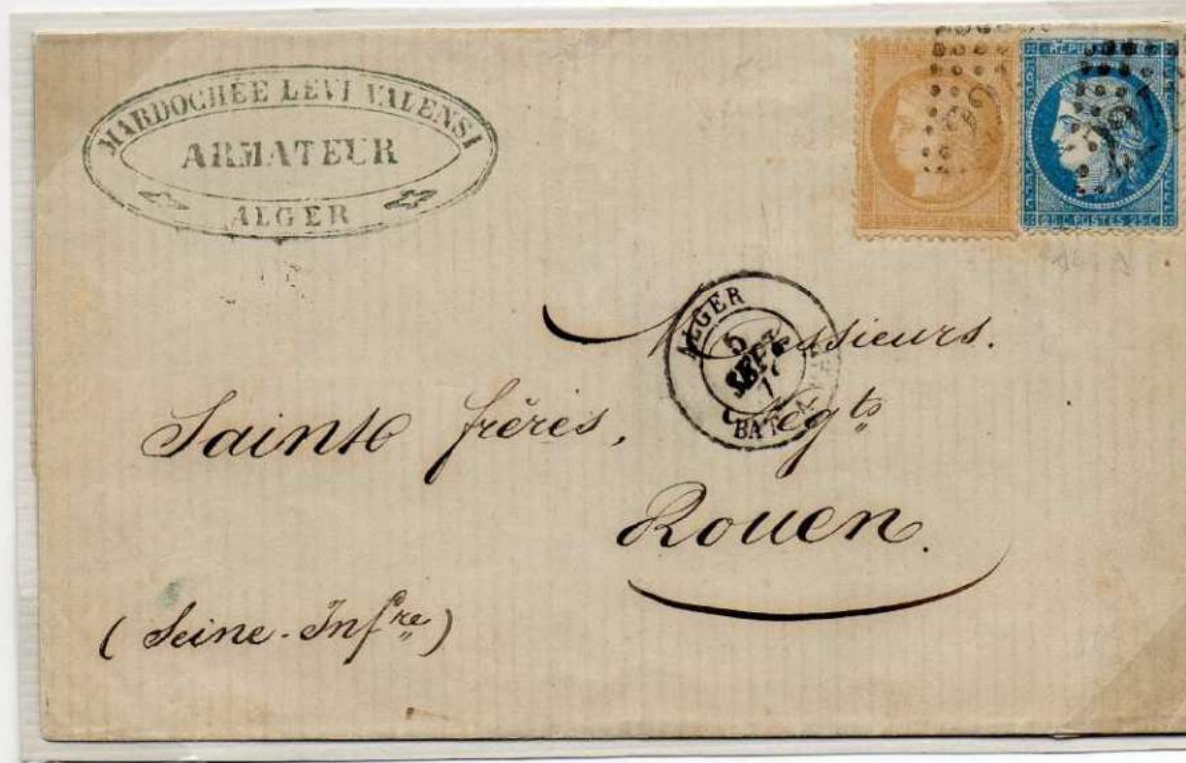 MARDOCHÉE LEVI VALENSI
ARMATEUR
ALGER
RÉPUB
25 C. POSTES 25 C.
ALGER
5
SEPT
7
BAT
Messieurs.
Sainte frères, Négts
Rouen.
(Seine-Infre)